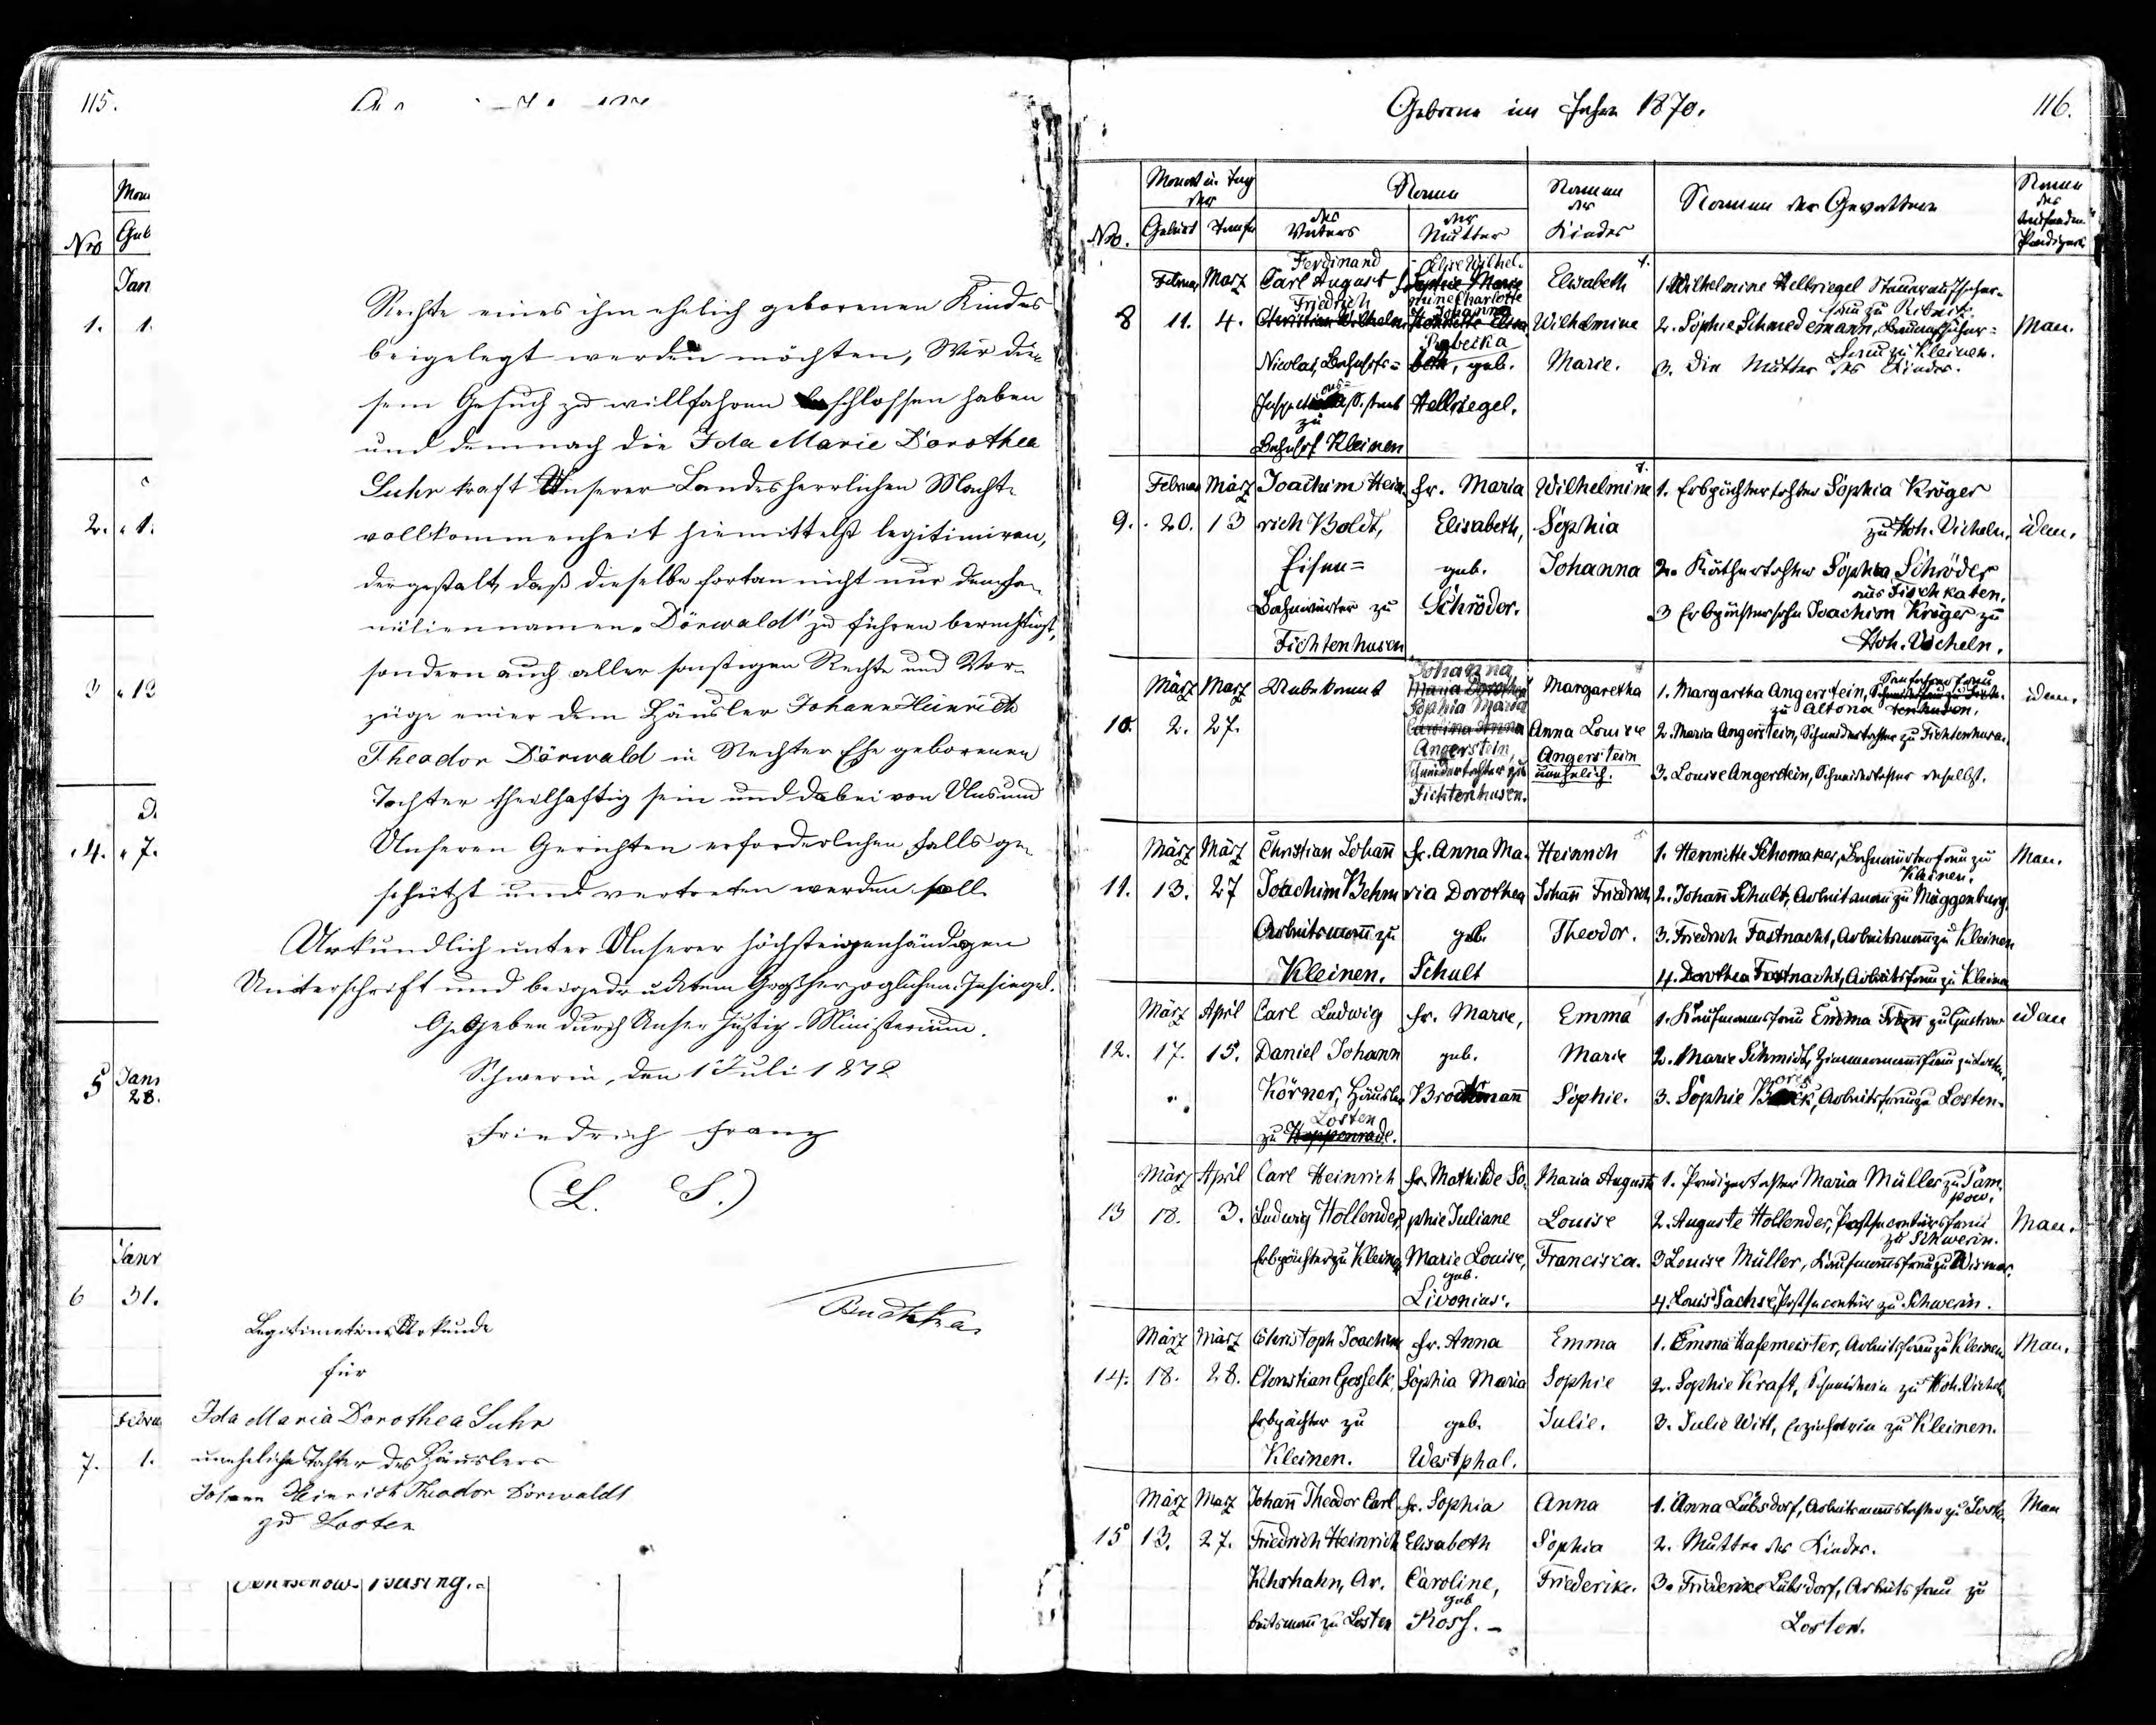 115.
Nro
Jan
1. 1.
2. 1.
3 13
4. 7.
5 Jan
28.
Janr
6 31.
Febru
7. 1.
Rechte eines ihm ehelich geborenen Kindes
beigelegt werden möchten, Wir die-
sem Gesuch zu willfahren beschlossen haben
und demnach die Ida Marie Dorothea
Suhr kraft Unserer Landesherrlichen Macht-
vollkommenheit hiemittelst legitimiren,
dergestalt, daß dieselbe fortan nicht nur den Fa-
miliennamen „Dörwald" zu führen berechtigt,
sondern auch aller sonstigen Rechte und Vor-
züge einer dem Häusler Johann Heinrich
Theodor Dörwald in Rechter Ehe geborenen
Tochter theilhaftig sein und dabei von Uns und
Unseren Gerichten erforderlichen Falls ge-
schützt und vertreten werden soll.
Urkundlich unter Unserer höchsteigenhändigen
Unterschrift und beigedrucktem Großherzoglichen Insiegel.
Gegeben durch Unser Justiz-Ministerium.
Schwerin, den 1 Juli 1872
Friedrich Franz
(L. S.)
Buchka
Legitimations Urkunde
für
Ida Maria Dorothea Suhr
uneheliche Tochter des Häuslers
Johann Heinrich Theodor Dörwaldt
zu Losten
Büsing.
Geborene im Jahre 1870.
116.
Monat u. Tag der
Namen
Namen der Kinder
Namen der Gevattern
Namen des taufenden Predigers
Nro. Geburt Taufe des Vaters der Mutter
Ferdinand Elise Wilhel-
Februar März Carl August Sophie Marie Elisabeth 1. Wilhelmine Hellriegel
Friedrich mine Charlotte frau zu Ribnitz.
8 11. 4. Christian Wilhelm Johanna Henriette Elisa Wilhelmine 2. Sophie Schmedemann, Man.
Rebecka frau zu Kleinen.
Nicolai, Bahnhofs- beth, geb. Marie. 3. Die Mutter des Kindes.
Inspections-Assistent Hellriegel.
zu
Bahnhof Kleinen
Februar März Joachim Hein- Fr. Maria Wilhelmine 1. Erbpächtertochter Sophia Kröger
9. 20. 13 rich Boldt, Elisabeth, Sophia zu Hoh. Vicheln, idem.
Eisen- geb. Johanna 2. Käthertochter Sophia Schröder
aus Fischkaten.
Bahnwärter zu Schröder. 3 Erbpächtersohn Joachim Kröger zu
Fichtenhusen Hoh. Vicheln.
Johanna
März März Unbekannt Maria Dorothea Margaretha 1. Margartha Angerstein, idem.
Sophia Maria zu Altona tenhusen.
10. 2. 27. Carolina Anna Anna Louise 2. Maria Angerstein, Schneidertochter zu Fichtenhusen
Angerstein, Angerstein
Schneidertochter zu unehelich. 3. Louise Angerstein, Schneidertochter daselbst.
Fichtenhusen.
März März Christian Johann Fr. Anna Ma- Heinrich 1. Henriette Schomaker, Bahnwärterfrau zu Man.
Kleinen.
11. 13. 27 Joachim Behm ria Dorothea Johann Friedrich 2. Johann Schult, Arbeitsmann zu Müggenburg.
Arbeitsmann zu geb. Theodor. 3. Friedrich Fastnacht, Arbeitsmann zu Kleinen
Kleinen. Schult 4. Dorothea Fastnacht, Arbeitsfrau zu Kleinen
März April Carl Ludwig Fr. Marie, Emma 1. Kaufmannsfrau Emma zu Güstrow idem
12. 17. 15. Daniel Johann geb. Marie 2. Marie Schmidt, Zimmermannsfrau zu Losten.
Körner, Häusler Brockmann Sophie. 3. Sophie Arbeitsfrau zu Losten.
Losten
zu Hoppenrade.
März April Carl Heinrich Fr. Mathilde So- Maria Auguste 1. Predigertochter Maria Müller zu Dam-
pow.
13 18. 3. Ludwig Hollender phie Juliane Louise 2. Auguste Hollender, Postsecretärsfrau Man.
zu Schwerin.
Erbpächter zu Kleinen Marie Louise, Francisca. 3 Louise Müller, Kaufmannsfrau zu Wismar.
geb.
Livonius. 4. Louis Sachse, Postsecretär zu Schwerin.
März März Christoph Joachim Fr. Anna Emma 1. Emma Hafemeister, Arbeitsfrau zu Kleinen Man.
14. 18. 28. Christian Gosselk, Sophia Maria Sophie 2. Sophie Kraft, zu Hoh. Vicheln
Erbpächter zu geb. Julie. 3. Julie Witt, Erzieherin zu Kleinen.
Kleinen. Westphal.
März März Johann Theodor Carl Fr. Sophia Anna 1. Anna Lübsdorf, Arbeitsmannstochter zu Losten Man
15 13. 27. Friedrich Heinrich Elisabeth Sophia 2. Mutter des Kindes.
Kehrhahn, Ar- Caroline, Friederike. 3. Friederike Lübsdorf, Arbeitsfrau zu
geb
beitsmann zu Losten Koss. Losten.